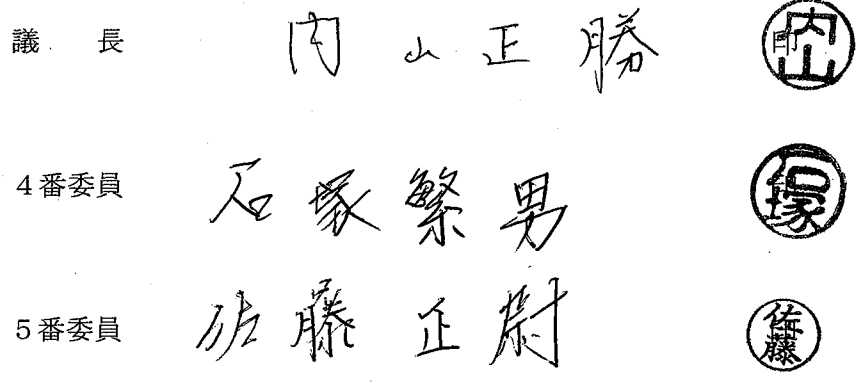 議 長 内山正勝 印 内山
4番委員 石塚繁男 石塚
5番委員 佐藤正尉 佐藤